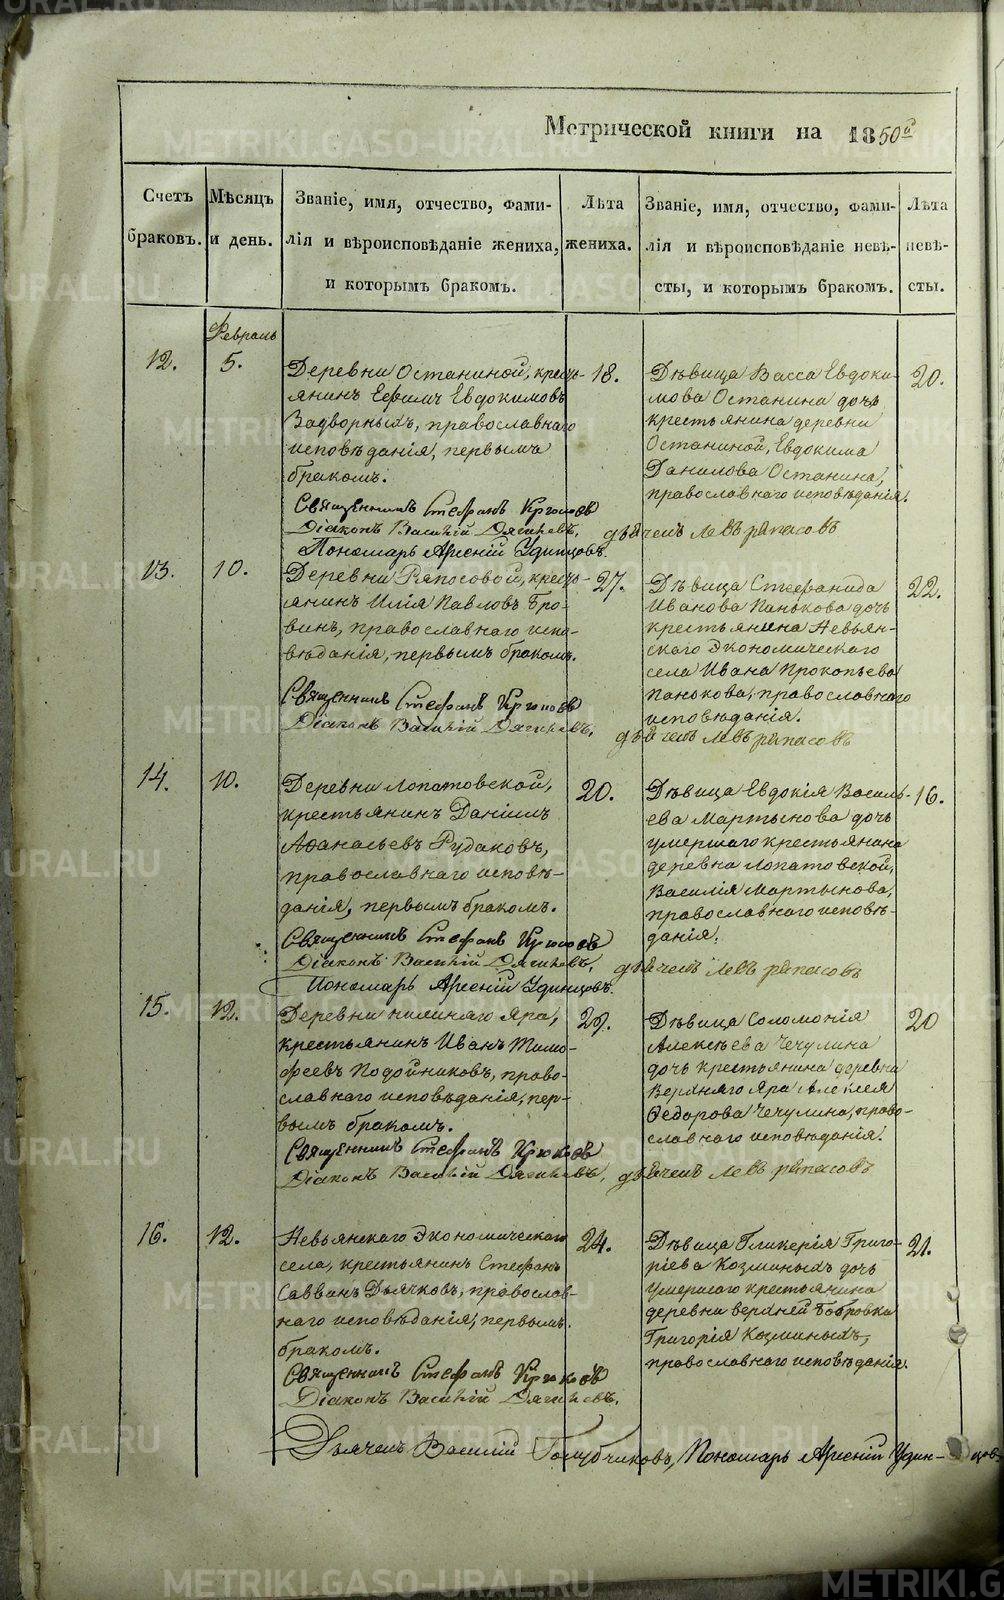 Метрической книги на 1850й
Счетъ браковъ.
Мѣсяцъ и день.
Званіе, имя, отчество, фами-
лія и вѣроисповѣданіе жениха,
и которымъ бракомъ.
Лѣта жениха.
Званіе, имя, отчество, фами-
лія и вѣроисповѣданіе невѣ-
сты, и которымъ бракомъ.
Лѣта невѣ-
сты.
Февраль
12.
5.
Деревни Останиной, кресть-
янинъ Ефимъ Евдокимовъ
Задворныхъ, православнаго
исповѣданія, первымъ
бракомъ.
18.
Дѣвица Васса Евдоки-
мова Останина дочь
крестьянина деревни
Останиной, Евдокима
Данилова Останина,
православнаго исповѣданія.
20.
Священникъ Стефанъ
Діаконъ Василій Дягилевъ, дьячекъ Левъ
Пономарь Арсеній Удинцовъ.
13.
10.
Деревни Ряпосовой, кресть-
янинъ Илія Павловъ Бро-
винъ, православнаго испо-
вѣданія, первымъ бракомъ.
27.
Дѣвица Стефанида
Иванова Панькова дочь
крестьянина Невьян-
скаго Экономическаго
села Ивана Прокопьева
Панькова, православнаго
исповѣданія.
22.
Священникъ Стефанъ
Діаконъ Василій Дягилевъ, дьячекъ Левъ
14.
10.
Деревни Лопатовской,
крестьянинъ Даніилъ
Аѳанасьевъ Рудаковъ,
православнаго исповѣ-
данія, первымъ бракомъ.
20.
Дѣвица Евдокія Василь-
ева Мартынова дочь
умершаго крестьянина
деревни Лопатовской,
Василія Мартынова,
православнаго исповѣ-
данія.
16.
Священникъ Стефанъ
Діаконъ Василій Дягилевъ, дьячекъ Левъ
Пономарь Арсеній Удинцовъ.
15.
12.
Деревни нижняго Яра,
крестьянинъ Иванъ Тимо-
феевъ Подойниковъ, право-
славнаго исповѣданія, пер-
вымъ бракомъ.
Дѣвица Соломонія
Алексѣева Чечулина
дочь крестьянина деревни
Верхняго Яра Алексея
Федорова Чечулина, право-
славнаго исповѣданія.
20
Священникъ Стефанъ
Діаконъ Василій Дягилевъ, дьячекъ Левъ
16.
12.
Невьянскаго Экономическаго
села, крестьянинъ Стефанъ
Саввинъ Дьячковъ, православ-
наго исповѣданія, первымъ
бракомъ.
24.
Дѣвица Гликерія Григо-
ріева Козминыхъ дочь
умершаго крестьянина
деревни верхней Бобровки
Григорія Козминыхъ,
православнаго исповѣданія.
21.
Священникъ Стефанъ
Діаконъ Василій Дягилевъ.
Дьячекъ Василій Голубчиковъ, Пономарь Арсеній Удин-
цовъ
METRIKI.GASO-URAL.RU